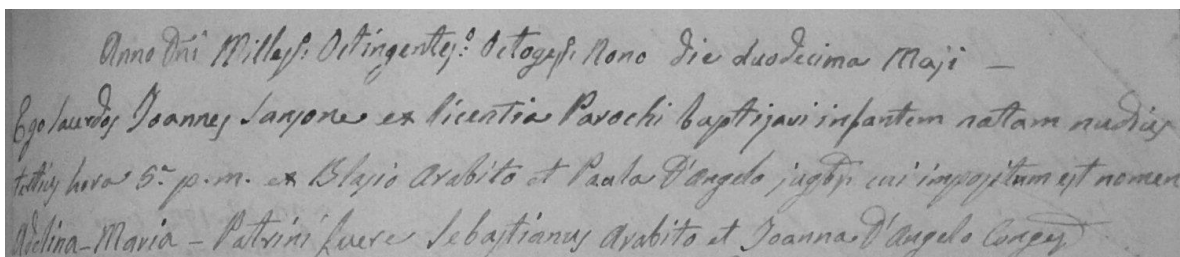 Anno Dñi Milles.º Octingentes.º Octoges.º Nono die duodecima Maji —
Ego Sacerdos Joannes Sansone ex licentia Parochi baptisavi infantem natam nudius
tertius hora 5.ª p.m. ex Blasio Arabito et Paula D'Angelo jugbs. cui impositum est nomen
Adelina-Maria – Patrini fuere Sebastianus Arabito et Joanna D'Angelo